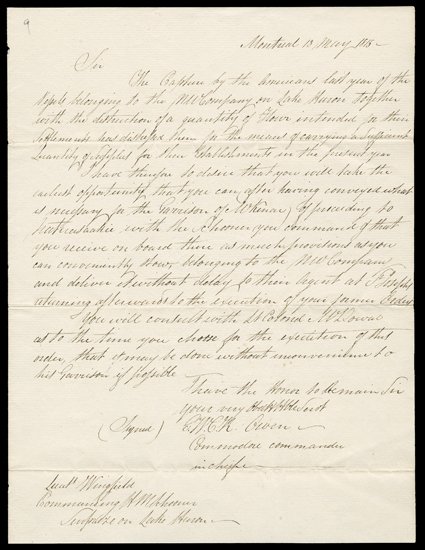 9
Montreal 13 May 1815
Sir
The Capture by the Americans last year of the
belonging to the NW Company on Lake Huron together
with the distruction of a quantity of Flour intended for their
Settlements has them for the means of carrying a sufficient
Quantity of Supplies for their Establishments in the present year
I have therefor to desire that you will take the
earliest opportunity that you can, after having conveyed what
is necessary for the Garrison of of proceeding to
with the Schooner you command & that
you receive on board there as much provisions as you
can conveniently stow, belonging to the NW Company
and deliver it without delay to their Agent at St Josephs
returning afterwards to the execution of your former Orders
You will consult with Lt Colonel McDouall
as to the time you choose for the execution of this
order, that it may be done without inconvenience to
his Garrison if possible
I have the Honor to Remain Sir
your very Hble Servt
(Signed) E.W.C.R. Owen
Commodore commander
in chief
Lieut. Wingfield
Commanding HM Schooner
Surprize on Lake Huron